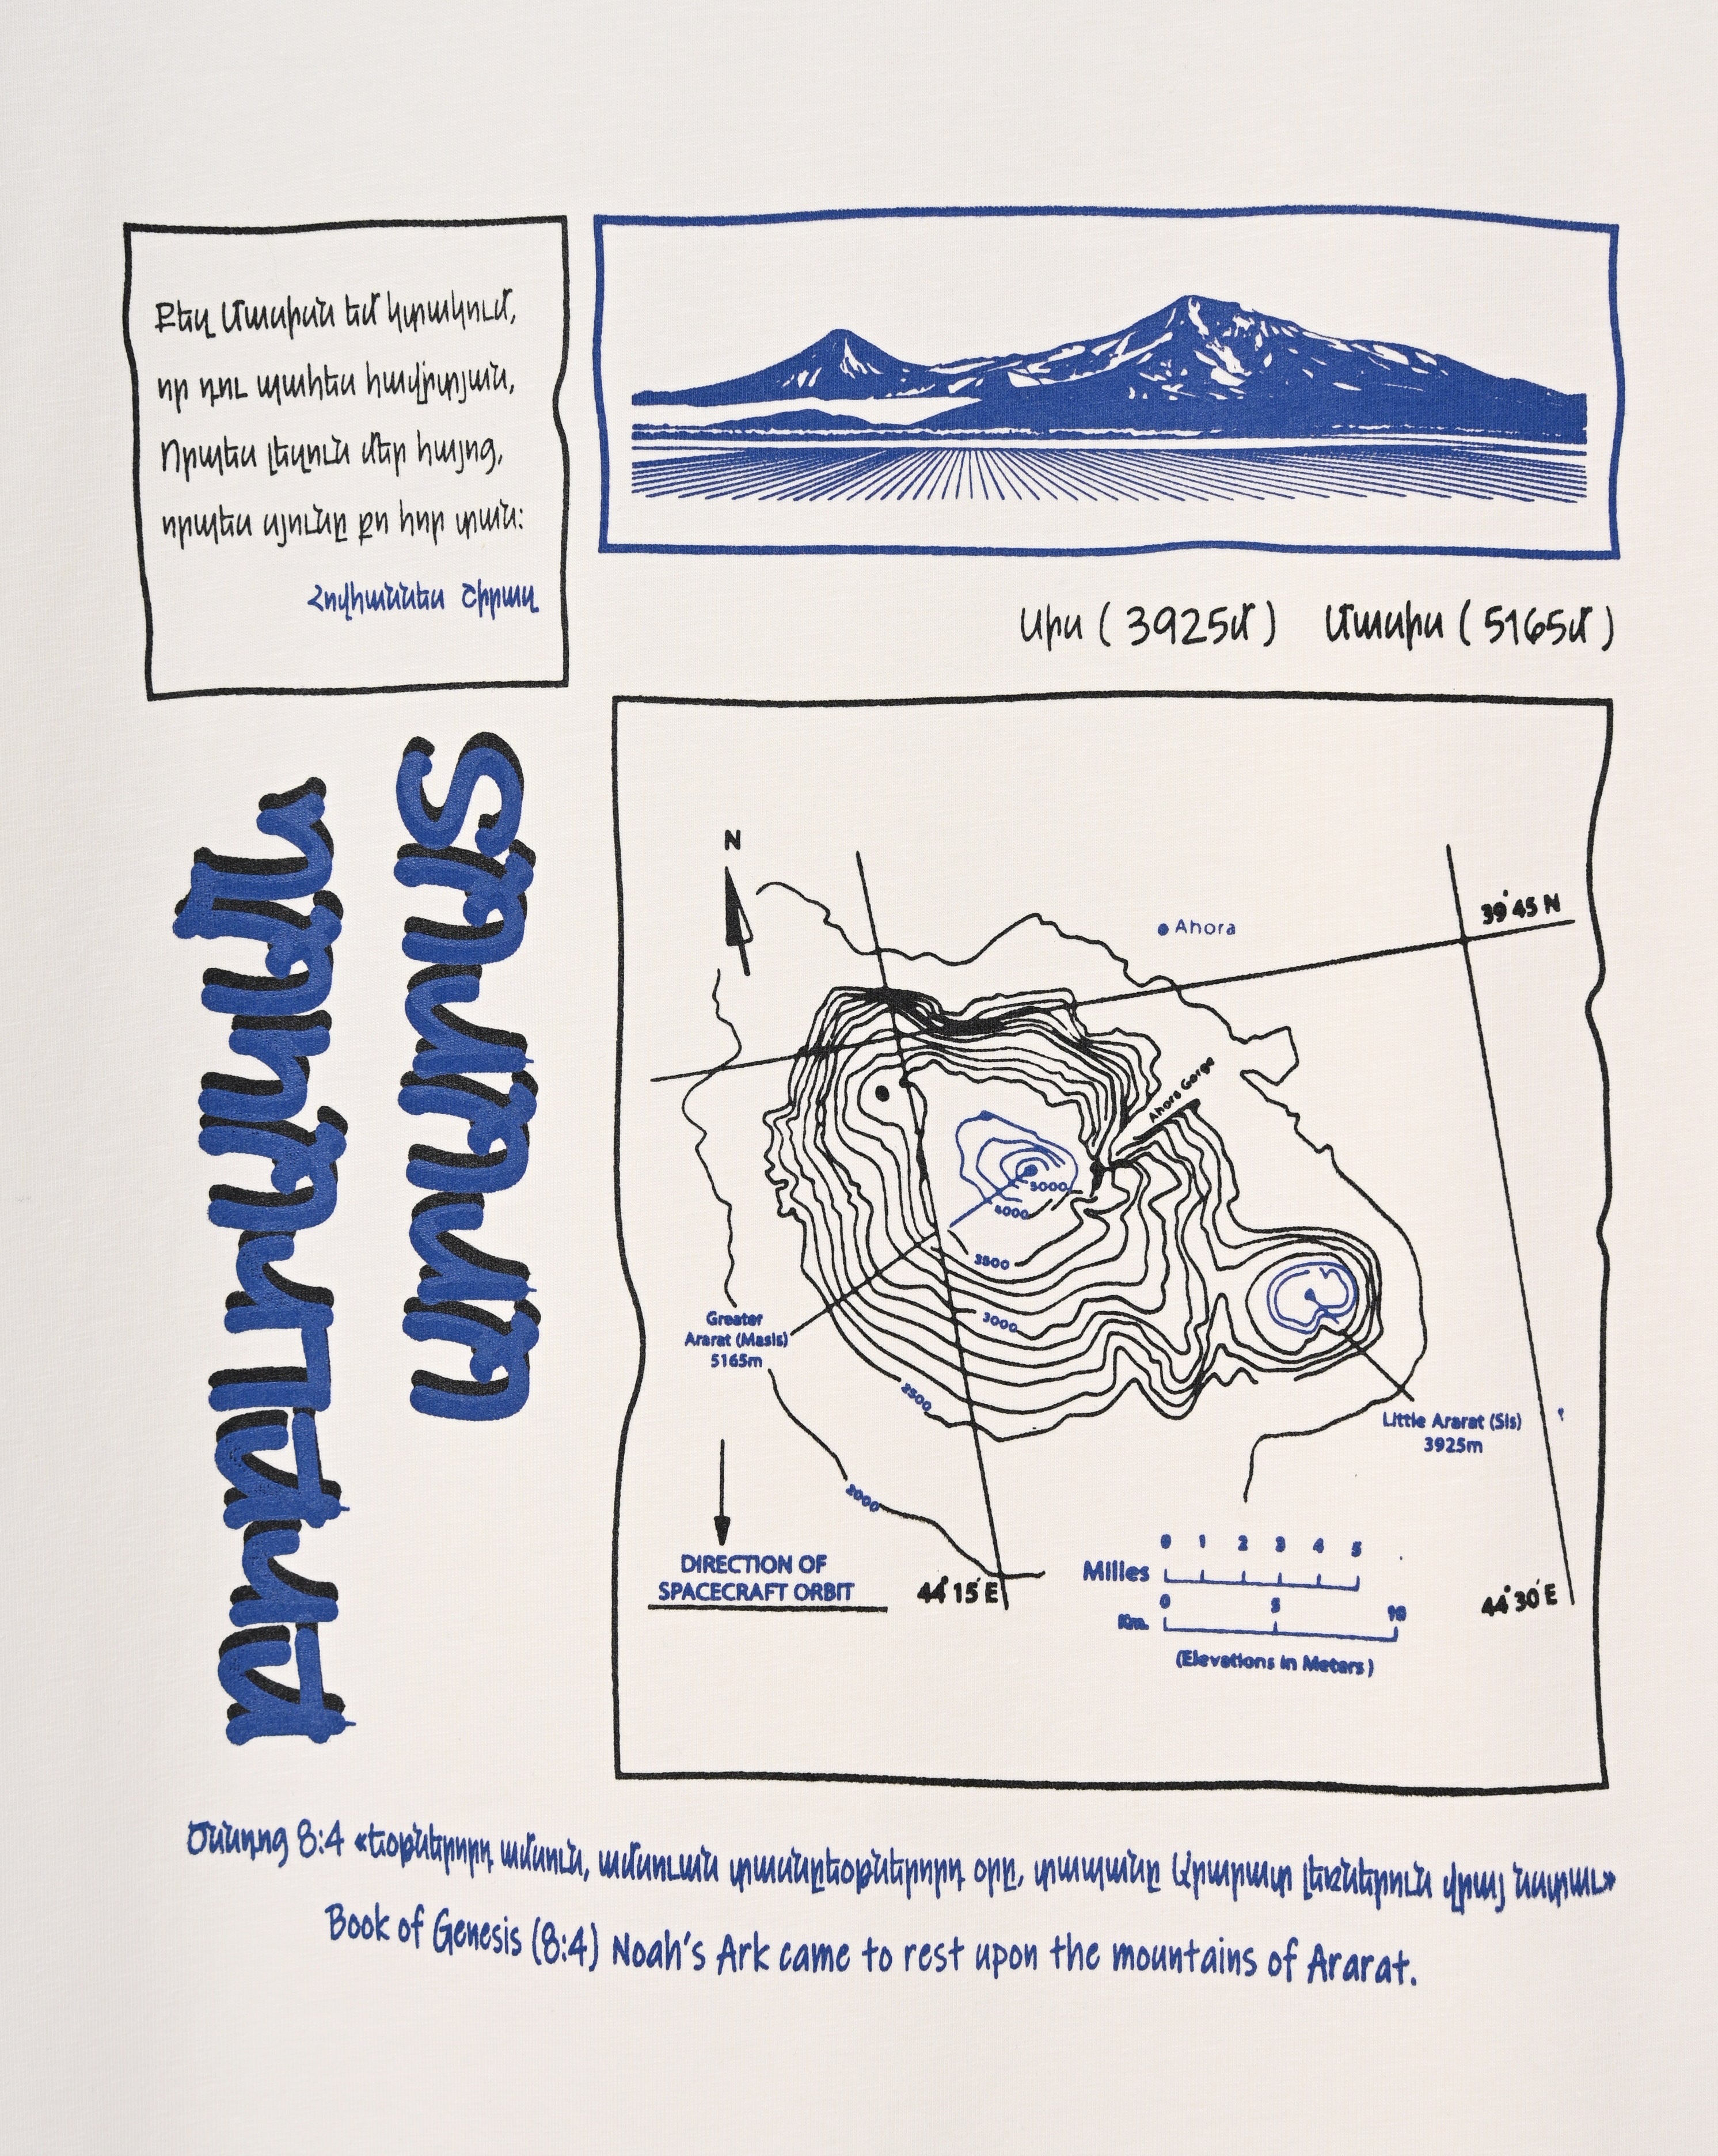 Քեզ Մասիսն եմ կտակում,
որ դու պահես հավիտյան,
Որպես լեզուն մեր հայոց,
որպես սյունը քո հոր տան:
Հովհաննես Շիրազ
Սիս ( 3925մ ) Մասիս ( 5165մ )
N
39°45 N
Ahora
Ahora Gorge
5000
4000
3500
3000
2500
2000
Greater
Ararat (Masis)
5165m
Little Ararat (Sis)
3925m
DIRECTION OF
SPACECRAFT ORBIT
44°15'E
44°30'E
0 1 2 3 4 5
Milles
0 5 10
Km.
(Elevations in Meters)
Ծննդոց 8:4 «եօթներորդ ամսուն, ամսուան տասնըեօթներորդ օրը, տապանը Արարատ լեռներուն վրայ նստաւ»
Book of Genesis (8:4) Noah's Ark came to rest upon the mountains of Ararat.